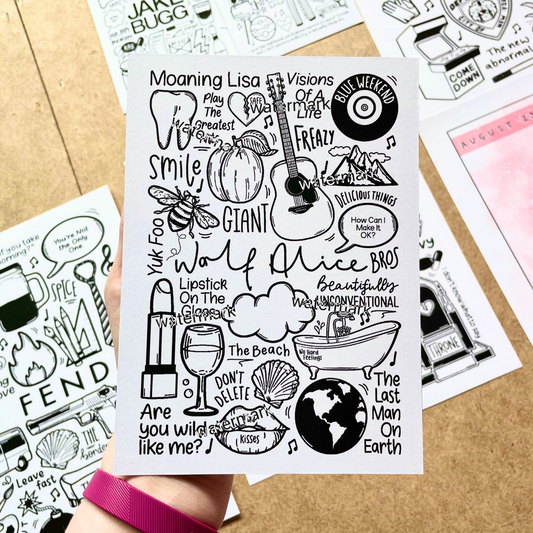 JAKE
BUGG
COME
DOWN
The new
abnormal
AUGUST 2
Moaning Lisa
Visions
Of A
Life
Play
The
Greatest
Hits
SAFE
BLUE WEEKEND
FREAZY
Smile
GIANT
DELICIOUS THINGS
How Can I
Make It
OK?
Yuk Foo
Wolf Alice
BROS
Lipstick
On The
Glass
Beautifully
UNCONVENTIONAL
The Beach
No Hard
Feelings
DON'T
DELETE
THE
Kisses
Are
you wild
like me?
The
Last
Man
On
Earth
watermark
watermark
watermark
watermark
watermark
watermark
you take
morning?"
You're Not
the Only
One
SPICE
FEND
Leave
fast
THRONE